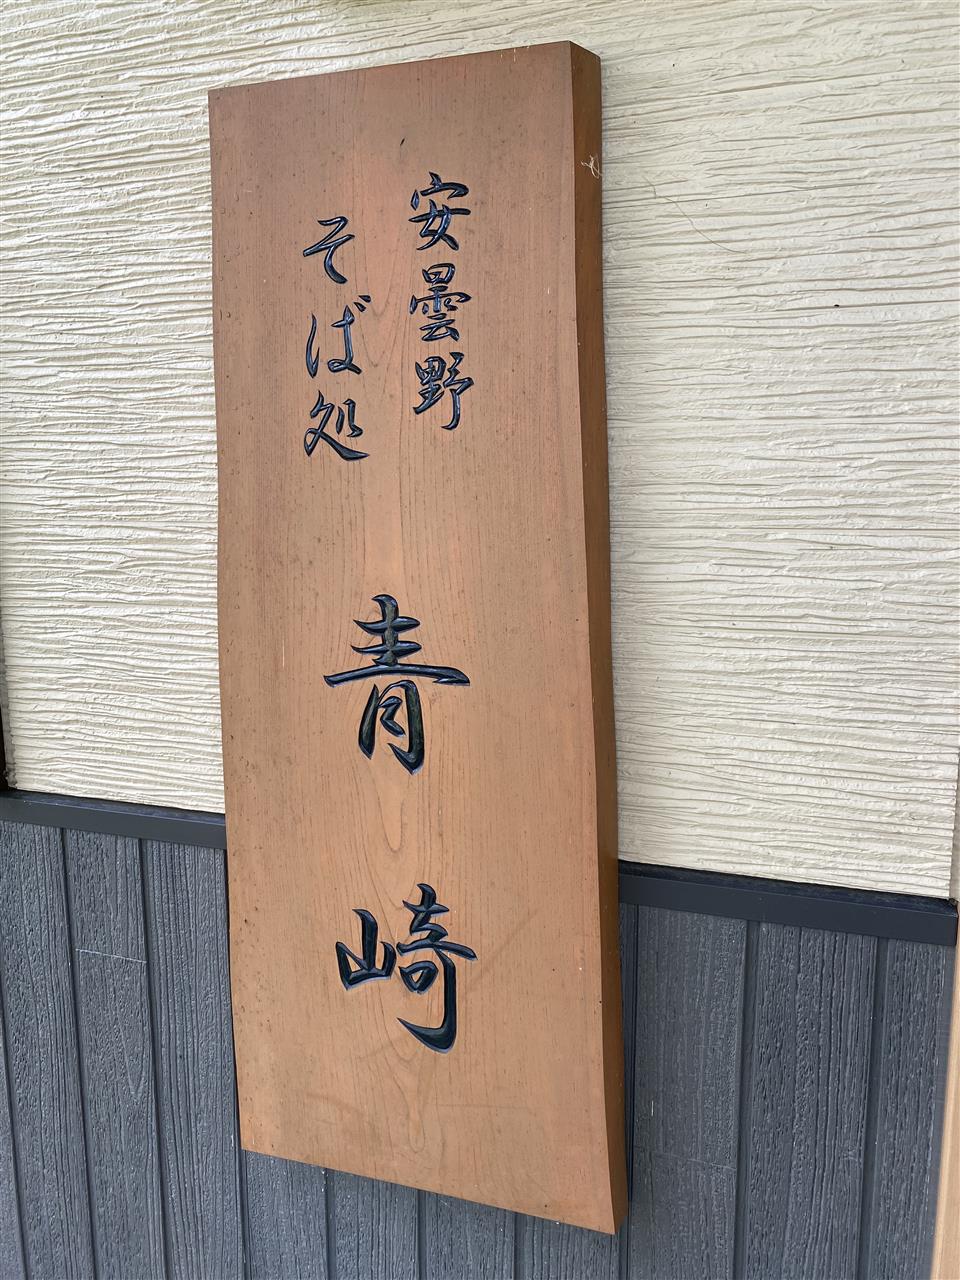 安曇野
そば処
青崎